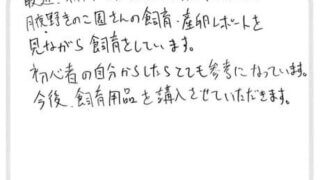 月夜野きのこ園さんの飼育・産卵レポートを
見ながら飼育をしています。
初心者の自分からしたらとても参考になっています。
今後、飼育用品を購入させていただきます。